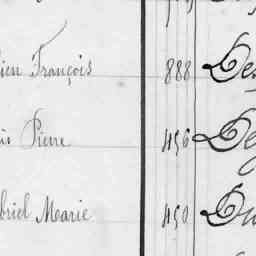 ien François 888 Des
is Pierre 456 De
briel Marie 450 Du